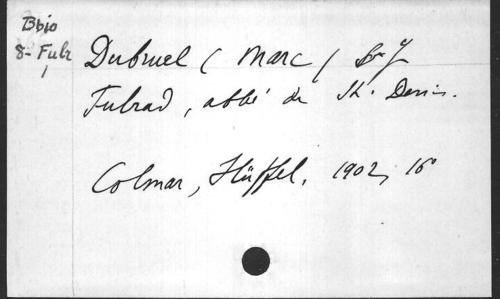 Bbio
8- Fulr
1
Dubruel (Marc) S. J
Fulrad, abbé de St. Denis.
Colmar, Hüffel, 1902, 16°